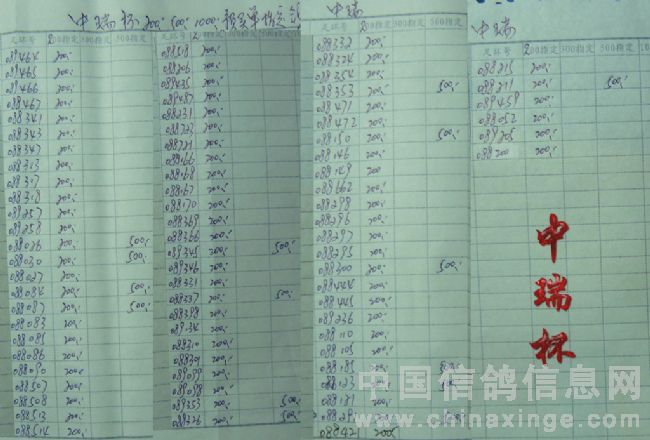 中瑞杯 200; 500; 1000;
足环号 200指定 300指定 500指定
089464 200;
089465 200;
089466 200;
088467 200;
088341 200;
088343 200;
088347 200;
088313 200;
088317 200;
088318 200;
089257 200;
089258 200;
088026 200; 500;
088030 200; 500;
088027 200;
089084 200; 500;
089087 200; 500;
089083 200;
088085 200;
088086 200;
088090 200;
088507 200;
088508 200;
088513 200;
088514 200;
088518 200;
088206 200;
089435 200;
089487 200;
088231 200;
088223 200;
088721 200;
088166 200;
088168 200;
088167 200;
088170 200;
088369 200;
088366 200;
089345 200; 500;
089346 200;
088331 200;
088337 200; 500;
088398 200;
088310 200;
088301 200;
089099 200;
089098 200;
089353 200; 500;
088326 200; 500;
中瑞
足环号 200指定 300指定 500指定
088332 200;
088324 200;
088354 200;
088353 200; 500;
088471 200;
088472 200;
088150 200; 500;
088146 200;
088149 200
089662 200;
088298 200;
088296 200;
088297 200;
088295 200;
088300 200; 500;
088444 200;
088445 200;
089236 200;
088110 200;
088105 200;
088185 200; 500;
088123 200; 500;
088131 200;
088421 200;
中瑞
足环号 200指定 300指定 500指定
088215 200;
088211 200; 500;
089459 200;
088052 200;
089205 200;
088200 200;
中
瑞
杯
中国信鸽信息网
www.chinaxinge.com